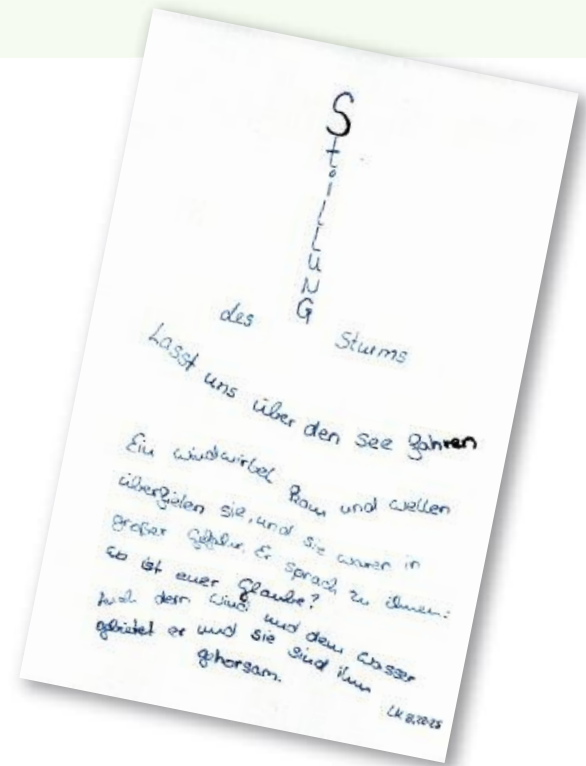 StillUNG
des Sturms
Lasst uns über den See fahren
Ein Windwirbel kam und Wellen
überfielen sie, und sie waren in
großer Gefahr. Er sprach zu ihnen:
wo ist euer Glaube?
Auch dem Wind und dem Wasser
gebietet er und sie sind ihm
gehorsam.